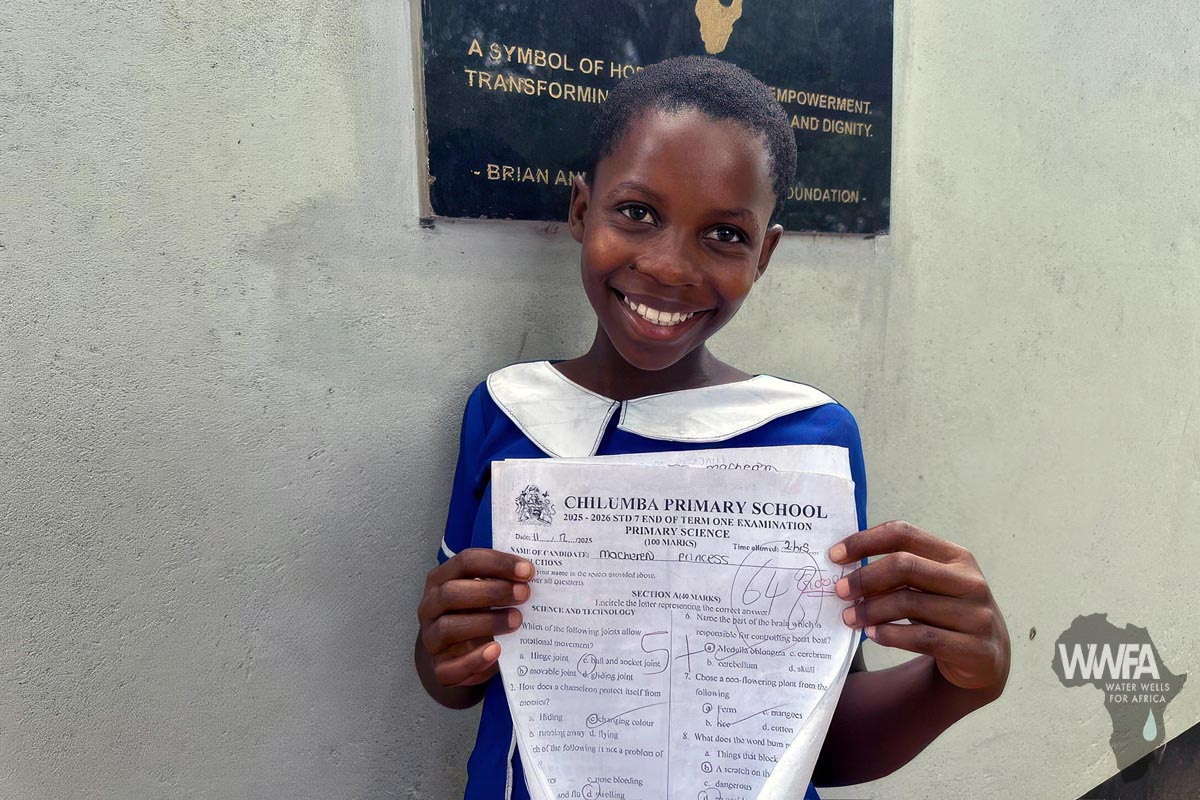 A SYMBOL OF HO
TRANSFORMIN
EMPOWERMENT.
AND DIGNITY.
- BRIAN AN
OUNDATION -
CHILUMBA PRIMARY SCHOOL
2025 - 2026 STD 7 END OF TERM ONE EXAMINATION
PRIMARY SCIENCE
(100 MARKS)
Time allowed: 2hrs
NAME OF CANDIDATE: Macheren Princess
your name in the spaces provided above.
all questions
64
SECTION A (40 MARKS)
Encircle the letter representing the correct answer
SCIENCE AND TECHNOLOGY
Which of the following joints allow
rotational movement?
a. Hinge joint c. ball and socket joint
b movable joint d. gliding joint
2. How does a chameleon protect itself from
enemies?
a. Hiding c changing colour
b. running away d. flying
ch of the following is not a problem of
c. nose bleeding
and flu d swelling
6. Name the part of the brain which is
responsible for controlling heart beat?
a Medulla oblongata c. cerebrum
b. cerebellum d. skull
7. Chose a non-flowering plant from the
following
a Fern c. mangoes
b. d. cotton
8. What does the word burn
a. Things that block
b A scratch on th
c. dangerous
WWFA
WATER WELLS
FOR AFRICA